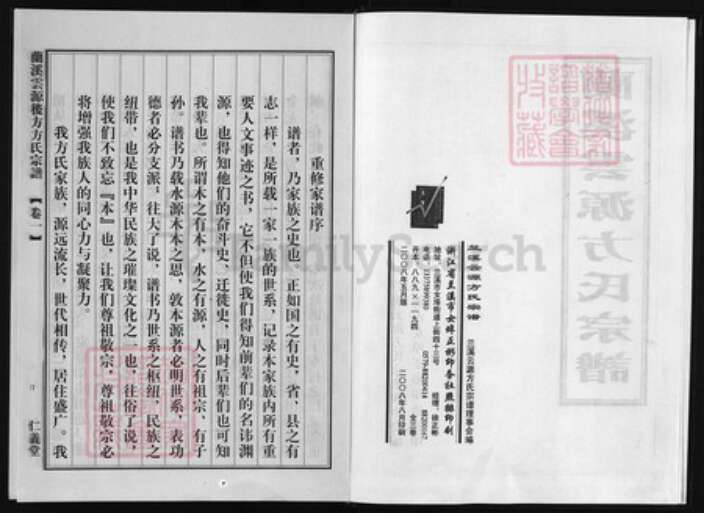 重修家谱序
谱者，乃家族之史也，正如国之有史，省、县之有
志一样，是所载一家一族的世系，记录本家族内所有重
要人文事迹之书，它不但使我们得知前辈们的名讳渊
源，也得知他们的奋斗史、迁徙史，同时后辈们也可知
我辈也。所谓木之有本，水之有源，人之有祖宗、有子
孙。谱书乃载水源木本之思，敦本源者必明世系，表功
德者必分支派。往大了说，谱书乃世系之枢纽，民族之
纽带，也是我中华民族之璀璨文化之一也，往俗了说，
使我们不致忘『本』也，让我们尊祖敬宗，尊祖敬宗必
将增强我族人的同心力与凝聚力。
我方氏家族，源远流长，世代相传，居住盛广。我
蘭溪雲源後方方氏宗譜
【卷一】
仁義堂
兰溪云源方氏宗谱
兰溪云源方氏宗谱理事会编
浙江省兰溪市女埠正彬印务社承排印刷
地址：兰溪市女埠街道上街四十三号
经理：徐正彬
电话：13375899080
0579-88260416
88260347
开本：八八九×一一九四
全三卷
二〇〇八年五月版
二〇〇八年八月印刷
雲源方氏宗譜
FamilySearch